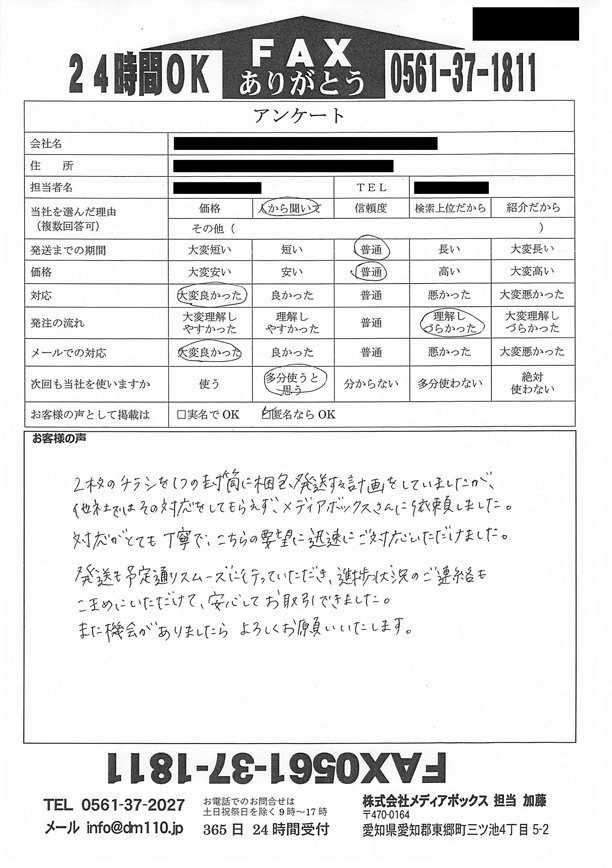 FAX
ありがとう
24時間OK
0561-37-1811
アンケート
会社名
住 所
担当者名 TEL
当社を選んだ理由 価格 人から聞いて 信頼度 検索上位だから 紹介だから
(複数回答可) その他 ( )
発送までの期間 大変短い 短い 普通 長い 大変長い
価格 大変安い 安い 普通 高い 大変高い
対応 大変良かった 良かった 普通 悪かった 大変悪かった
発注の流れ 大変理解しやすかった 理解しやすかった 普通 理解しづらかった 大変理解しづらかった
メールでの対応 大変良かった 良かった 普通 悪かった 大変悪かった
次回も当社を使いますか 使う 多分使うと思う 分からない 多分使わない 絶対使わない
お客様の声として掲載は □実名でOK ☑匿名ならOK
お客様の声
2枚のチラシを1つの封筒に梱包、発送する計画をしていましたが、
他社ではその対応をしてもらえず、メディアボックスさんに依頼しました。
対応がとても丁寧で、こちらの要望に迅速にご対応いただけました。
発送も予定通りスムーズに行っていただき、進捗状況のご連絡も
こまめにいただけて、安心してお取引できました。
また機会がありましたら よろしくお願いいたします。
FAX0561-37-1811
TEL 0561-37-2027
メール info@dm110.jp
お電話でのお問合せは
土日祝祭日を除く9時〜17時
365日 24時間受付
株式会社メディアボックス 担当 加藤
〒470-0164
愛知県愛知郡東郷町三ツ池4丁目5-2